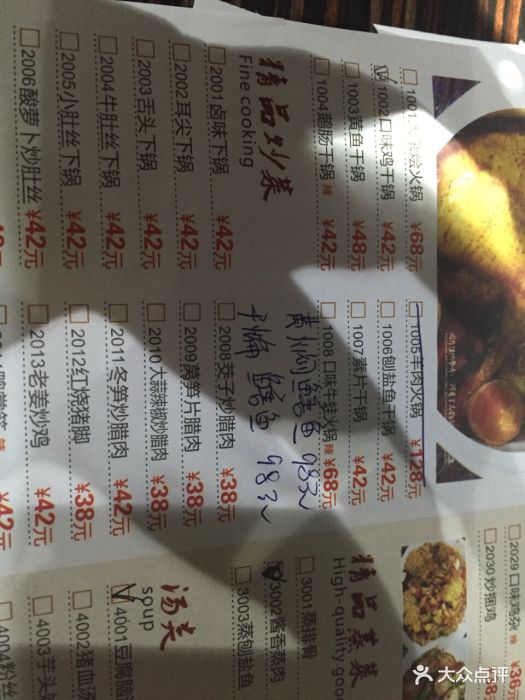 1002口味鸡干锅 ¥42元
1003黄鱼干锅 ¥48元
1004鹅肠干锅 辣 ¥42元
¥68元
精品炒菜
Fine cooking
2001卤味下锅 ¥42元
2002耳尖下锅 ¥42元
2003舌头下锅 ¥42元
2004牛肚丝下锅 ¥42元
2005小肚丝下锅 ¥42元
2006酸萝卜炒肚丝 ¥42元
1005羊肉火锅 ¥128元
1006刨盐鱼干锅 ¥42元
1007素片干锅 ¥42元
1008口味牛蛙火锅 辣 ¥68元
黄焖鳝鱼 98元
干煸鳝鱼 98元
2008茭子炒腊肉 ¥38元
2009莴笋片腊肉 ¥38元
2010大蒜辣椒炒腊肉 ¥38元
2011冬笋炒腊肉 ¥42元
2012红烧猪脚 ¥38元
2013老姜炒鸡 ¥42元
2029口味鸡杂 辣
2030炒捆鸡
精品蒸菜
High-quality
3001蒸排骨
3002酱香蒸肉
3003蒸刨盐鱼
汤类
soup
4001豆腐脑
4002猪血汤
4003芋头
4004粉丝
大众点评